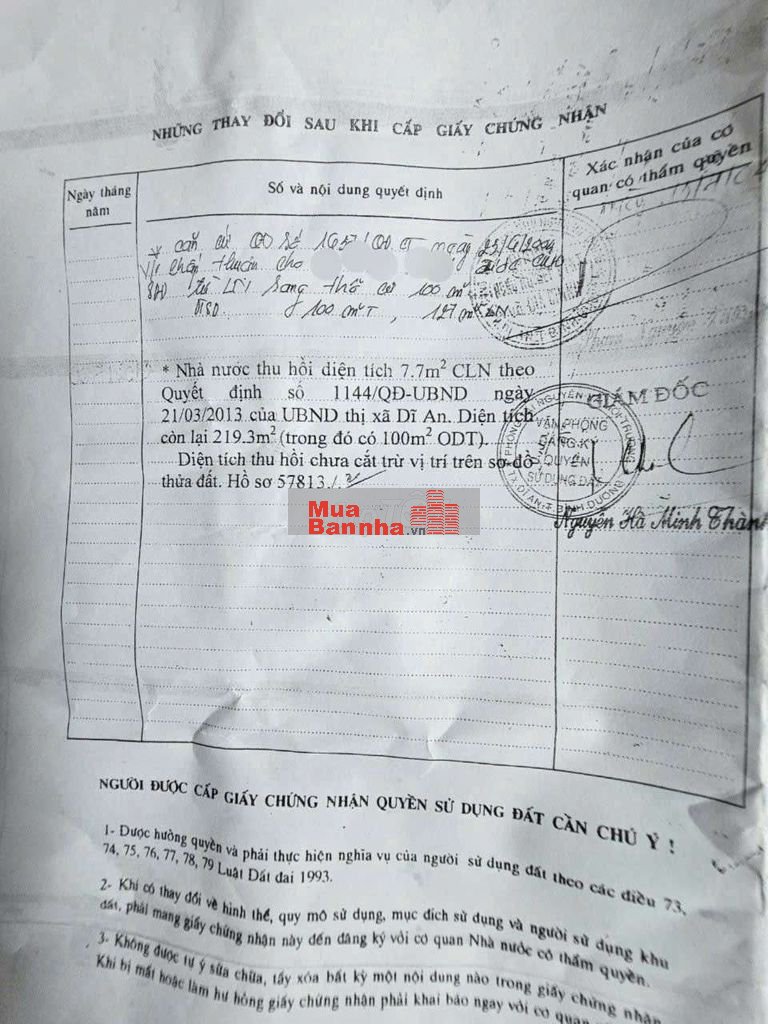 NHỮNG THAY ĐỔI SAU KHI CẤP GIẤY CHỨNG NHẬN
Ngày tháng năm
Số và nội dung quyết định
Xác nhận của cơ quan có thẩm quyền
căn cứ QĐ số 1657/QĐ ngày 23/4/2004
chấp thuận cho
từ LN sang thổ cư 100 m²
100 m² T, 127 m² LN
* Nhà nước thu hồi diện tích 7.7m² CLN theo
Quyết định số 1144/QĐ-UBND ngày
21/03/2013 của UBND thị xã Dĩ An. Diện tích
còn lại 219.3m² (trong đó có 100m² ODT).
Diện tích thu hồi chưa cắt trừ vị trí trên sơ đồ
thửa đất. Hồ sơ 57813
GIÁM ĐỐC
VĂN PHÒNG
ĐĂNG KÝ
QUYỀN
SỬ DỤNG ĐẤT
TX DĨ AN, T. BÌNH DƯƠNG
Nguyễn Hà Minh Thành
Mua
Bannha.vn
NGƯỜI ĐƯỢC CẤP GIẤY CHỨNG NHẬN QUYỀN SỬ DỤNG ĐẤT CẦN CHÚ Ý !
1- Được hưởng quyền và phải thực hiện nghĩa vụ của người sử dụng đất theo các điều 73,
74, 75, 76, 77, 78, 79 Luật Đất đai 1993.
2- Khi có thay đổi về hình thể, quy mô sử dụng, mục đích sử dụng và người sử dụng khu
đất, phải mang giấy chứng nhận này đến đăng ký với cơ quan Nhà nước có thẩm quyền.
3- Không được tự ý sửa chữa, tẩy xóa bất kỳ một nội dung nào trong giấy chứng nhận
Khi bị mất hoặc làm hư hỏng giấy chứng nhận phải khai báo ngay với cơ quan